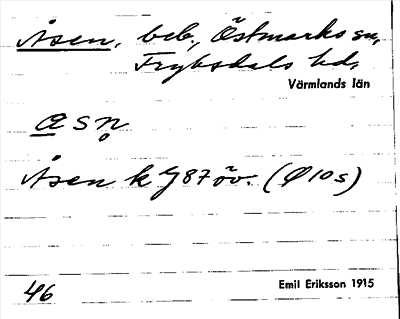 Åsen, beb., Östmarks sn,
Fryksdals hd,
Värmlands län
a s n̥
Åsen k G87 öv. (Ö 10 s)
46
Emil Eriksson 1915